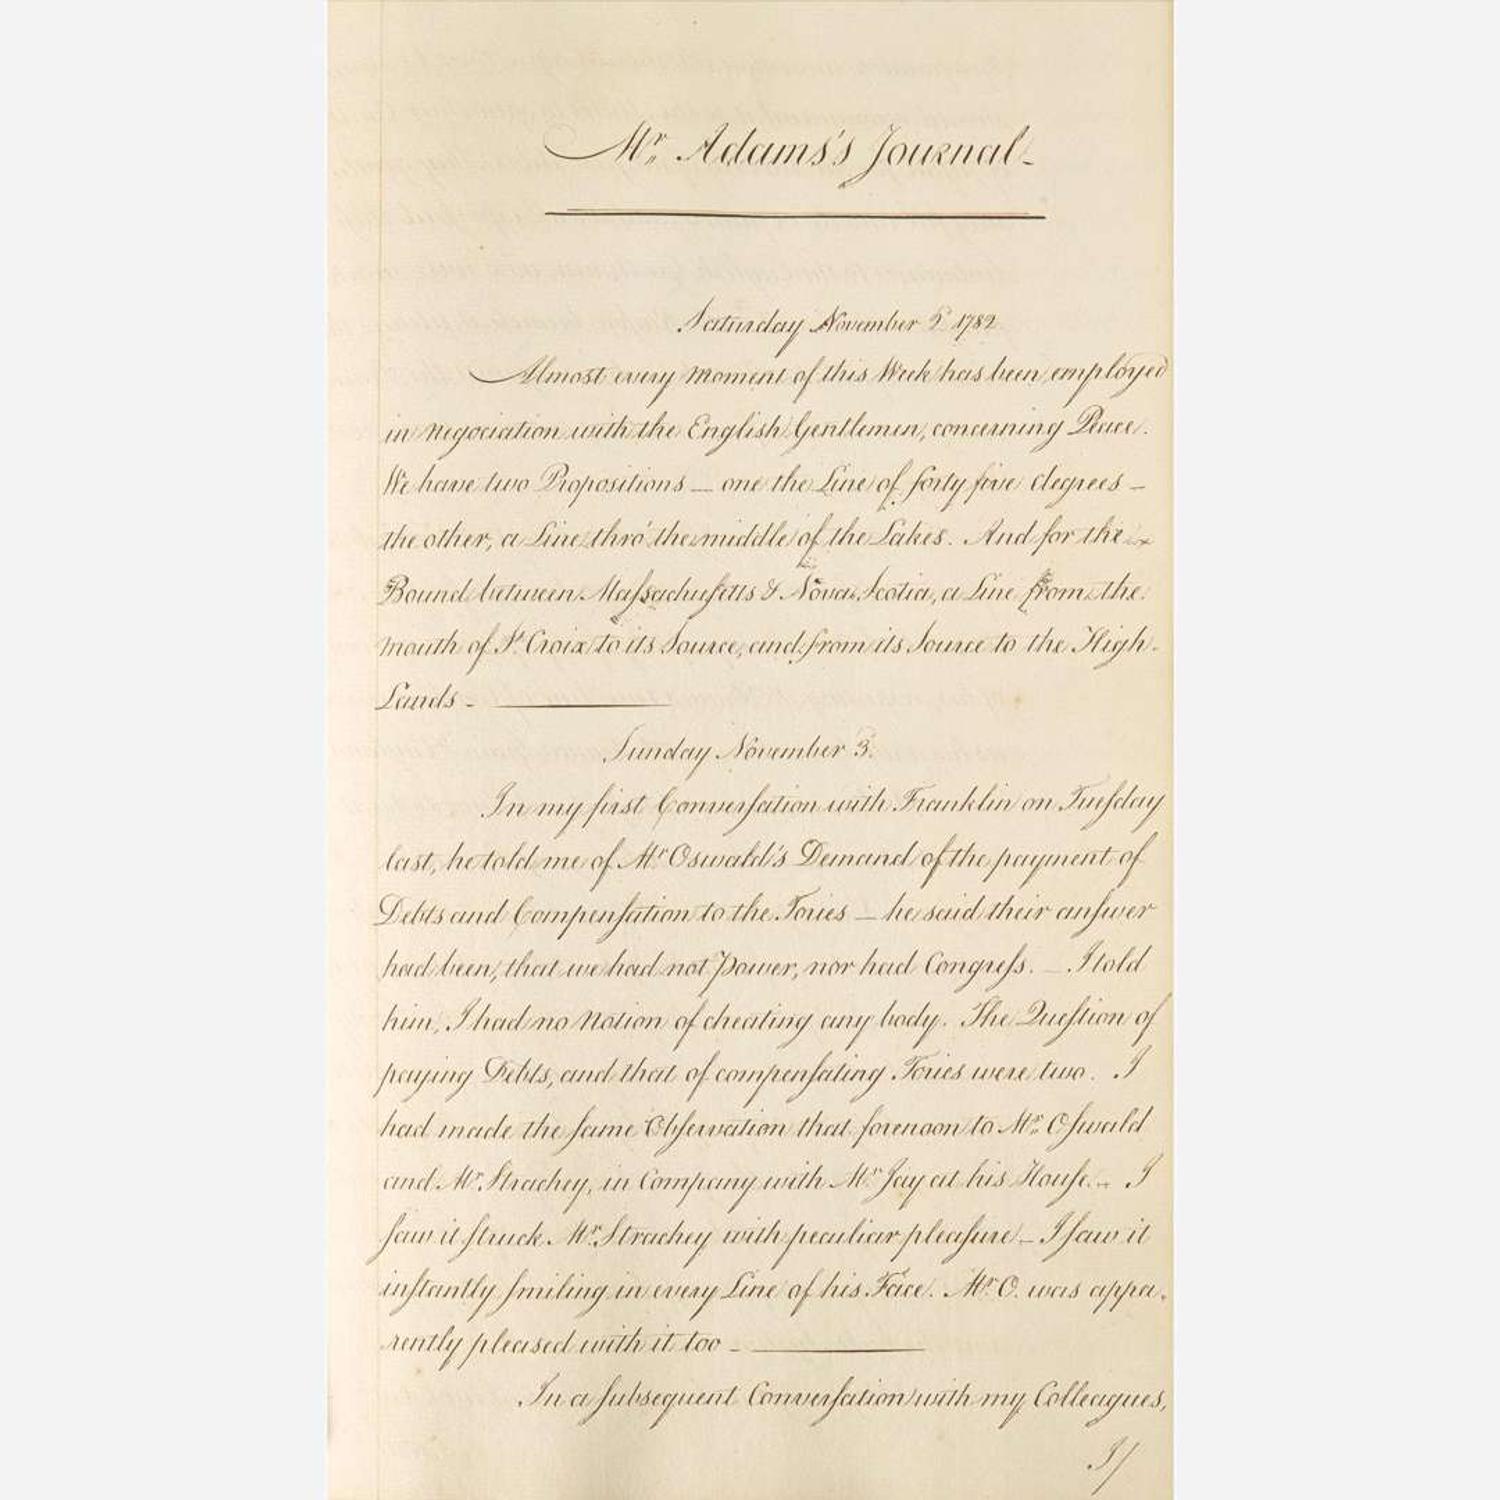 Mr. Adams's Journal-
Saturday November 2. 1782
Almost every moment of this Week has been employed
in negociation with the English Gentlemen, concerning Peace.
We have two Propositions — one the Line of forty five degrees —
the other, a Line thro' the middle of the Lakes. And for the
Bound between Maſsachuſetts & Nova Scotia, a Line from the
mouth of St. Croix to its Source, and from its Source to the High-
Lands -
Sunday November 3.
In my first Converſation with Franklin on Tueſday
last, he told me of Mr. Oswald's Demand of the payment of
Debts and Compenſation to the Tories — he said their anſwer
had been, that we had not Power, nor had Congreſs. — I told
him, I had no Notion of cheating any body. The Queſtion of
paying Debts, and that of compenſating Tories were two. I
had made the ſame Obſervation that forenoon to Mr. Oſwald
and Mr. Strachey, in Company with Mr. Jay at his Houſe. - I
ſaw it ſtruck Mr. Strachey with peculiar pleaſure - I ſaw it
inſtantly ſmiling in every Line of his Face. Mr. O. was appa-
rently pleased with it too -
In a ſubsequent Converſation with my Colleagues,
I/